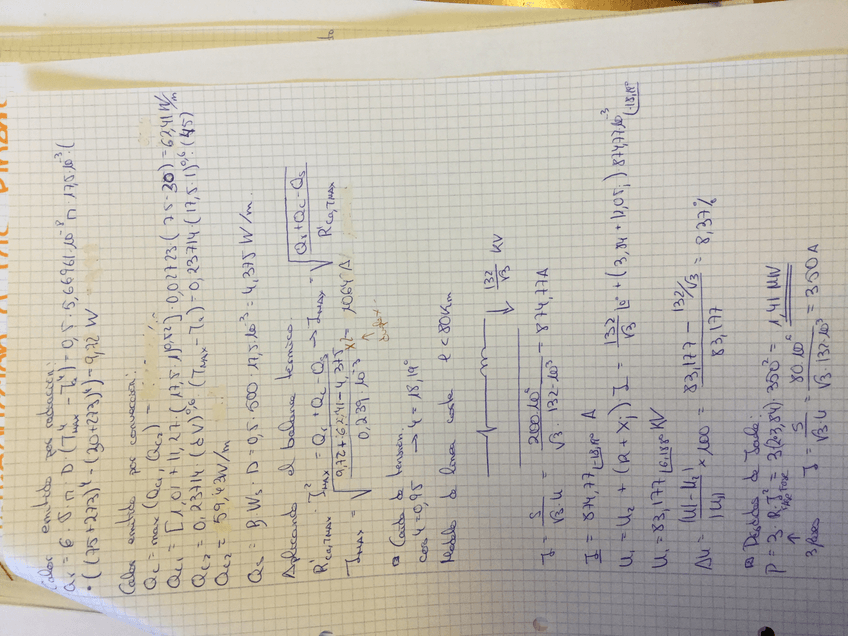 Calor emitido por radiación:
Qr = ε · σ · π · D (T⁴max − Ta⁴) = 0,5 · 5,66961·10⁻⁸ · π · 17,5·10⁻³ · (
· ((75+273)⁴ − (30+273)⁴) = 9,72 W
Calor emitido por convección:
Qc = max (Qc1, Qc2) =
Qc1 = [1,01 + 11,27 · (17,5 · 10,52)] 0,02723 (75−30) = 62,41 W/m
Qc2 = 0,23714 (d V)^0,6 · (Tmax − Ta) = 0,23714 (17,5·1)^0,6 · (45)
Qc2 = 59,43 W/m
Qs = β Ws · D = 0,5 · 500 · 17,5·10⁻³ = 4,375 W/m.
Aplicando el balance termico.
R'ca,Tmax · I²max = Qr + Qc − Qs → Imax = √((Qr + Qc − Qs) / R'ca,Tmax)
Imax = √((9,72 + 62,41 − 4,375) / (0,239·10⁻³)) x2 = 1064 A
▫ Caida de tension:
cos φ = 0,95 → φ = 18,19°
Modelo de linea corta l < 80 Km
132/√3 KV
I = S / (√3 · U) = 200·10⁶ / (√3 · 132·10³) = 874,77 A
I = 874,77 |-18,19° A
U₁ = U₂ + (R + Xj) I = 132/√3 |0° + (3,84 + 12,05j) 874,77·10⁻³ |-18,19°
U₁ = 83,177 |6,158° KV
ΔU = (|U₁| − |U₂|) / |U₁| × 100 = (83,177 − 132/√3) / 83,177 = 8,37%
▫ Perdidas de Joule:
P = 3 · R · I² = 3 (3,84) · 350² = 1,41 MW
3 fases
I = S / (√3 U) = 80·10⁶ / (√3 · 132·10³) = 350 A